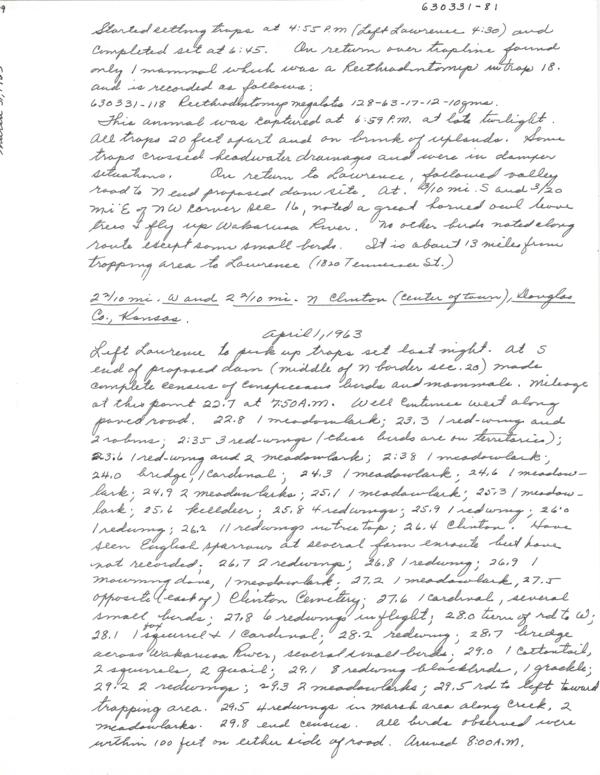 630331-81
Started setting traps at 4:55 P.M (Left Lawrence 4:30) and
completed set at 6:45. On return over trapline found
only 1 mammal which was a Reithrodontomys in trap 18.
and is recorded as follows:
630331-118 Reithrodontomys megalotis 128-63-17-12-10gms.
This animal was captured at 6:59 P.M. at late twilight.
All traps 20 feet apart and on brink of uplands. Some
traps crossed headwater drainages and were in damper
situations. On return to Lawrence, followed valley
road to N end proposed dam site. At. /10 mi. S and 3/20
mi E of NW corner Sec 16, noted a great horned owl leave
trees & fly up Wakarusa River. No other birds noted along
route except some small birds. It is about 13 miles from
trapping area to Lawrence (1820 Tennessee St.)
2 /10 mi. W and 2 /10 mi. N Clinton (center of town), Douglas
Co., Kansas.
April 1, 1963
Left Lawrence to pick up traps set last night. At S
end of proposed dam (middle of N border sec. 20) made
complete census of conspicuous birds and mammals. Mileage
at this point 22.7 at 7:50 A.M. Will continue west along
paved road. 22.8 1 meadowlark; 23.3 1 red-wing and
2 robins; 2:35 3 red-wings (these birds are on territories);
23.6 1 red-wing and 2 meadowlark; 2:38 1 meadowlark;
24.0 bridge, 1 cardinal; 24.3 1 meadowlark; 24.6 1 meadow-
lark; 24.9 2 meadowlarks; 25.1 1 meadowlark; 25.3 1 meadow-
lark; 25.6 killdeer; 25.8 4 redwings; 25.9 1 redwing; 26.0
1 redwing; 26.2 11 redwings in tree top; 26.4 Clinton. Have
seen English sparrows at several farm enroute but have
not recorded; 26.7 2 redwings; 26.8 1 redwing; 26.9 1
mourning dove, 1 meadowlark; 27.2 1 meadowlark, 27.5
opposite (east of) Clinton Cemetery; 27.6 1 cardinal, several
small birds; 27.8 6 redwings in flight; 28.0 turn of rd to W;
28.1 1 fox squirrel & 1 cardinal; 28.2 redwing; 28.7 bridge
across Wakarusa River, several small birds. 29.0 1 cottontail,
2 squirrels, 2 quail; 29.1 8 redwing blackbirds, 1 grackle;
29.2 2 redwings; 29.3 2 meadowlarks; 29.5 rd to left toward
trapping area. 29.5 4 redwings in marsh area along creek, 2
meadowlarks. 29.8 end census. All birds observed were
within 100 feet on either side of road. Arrived 8:00 A.M.